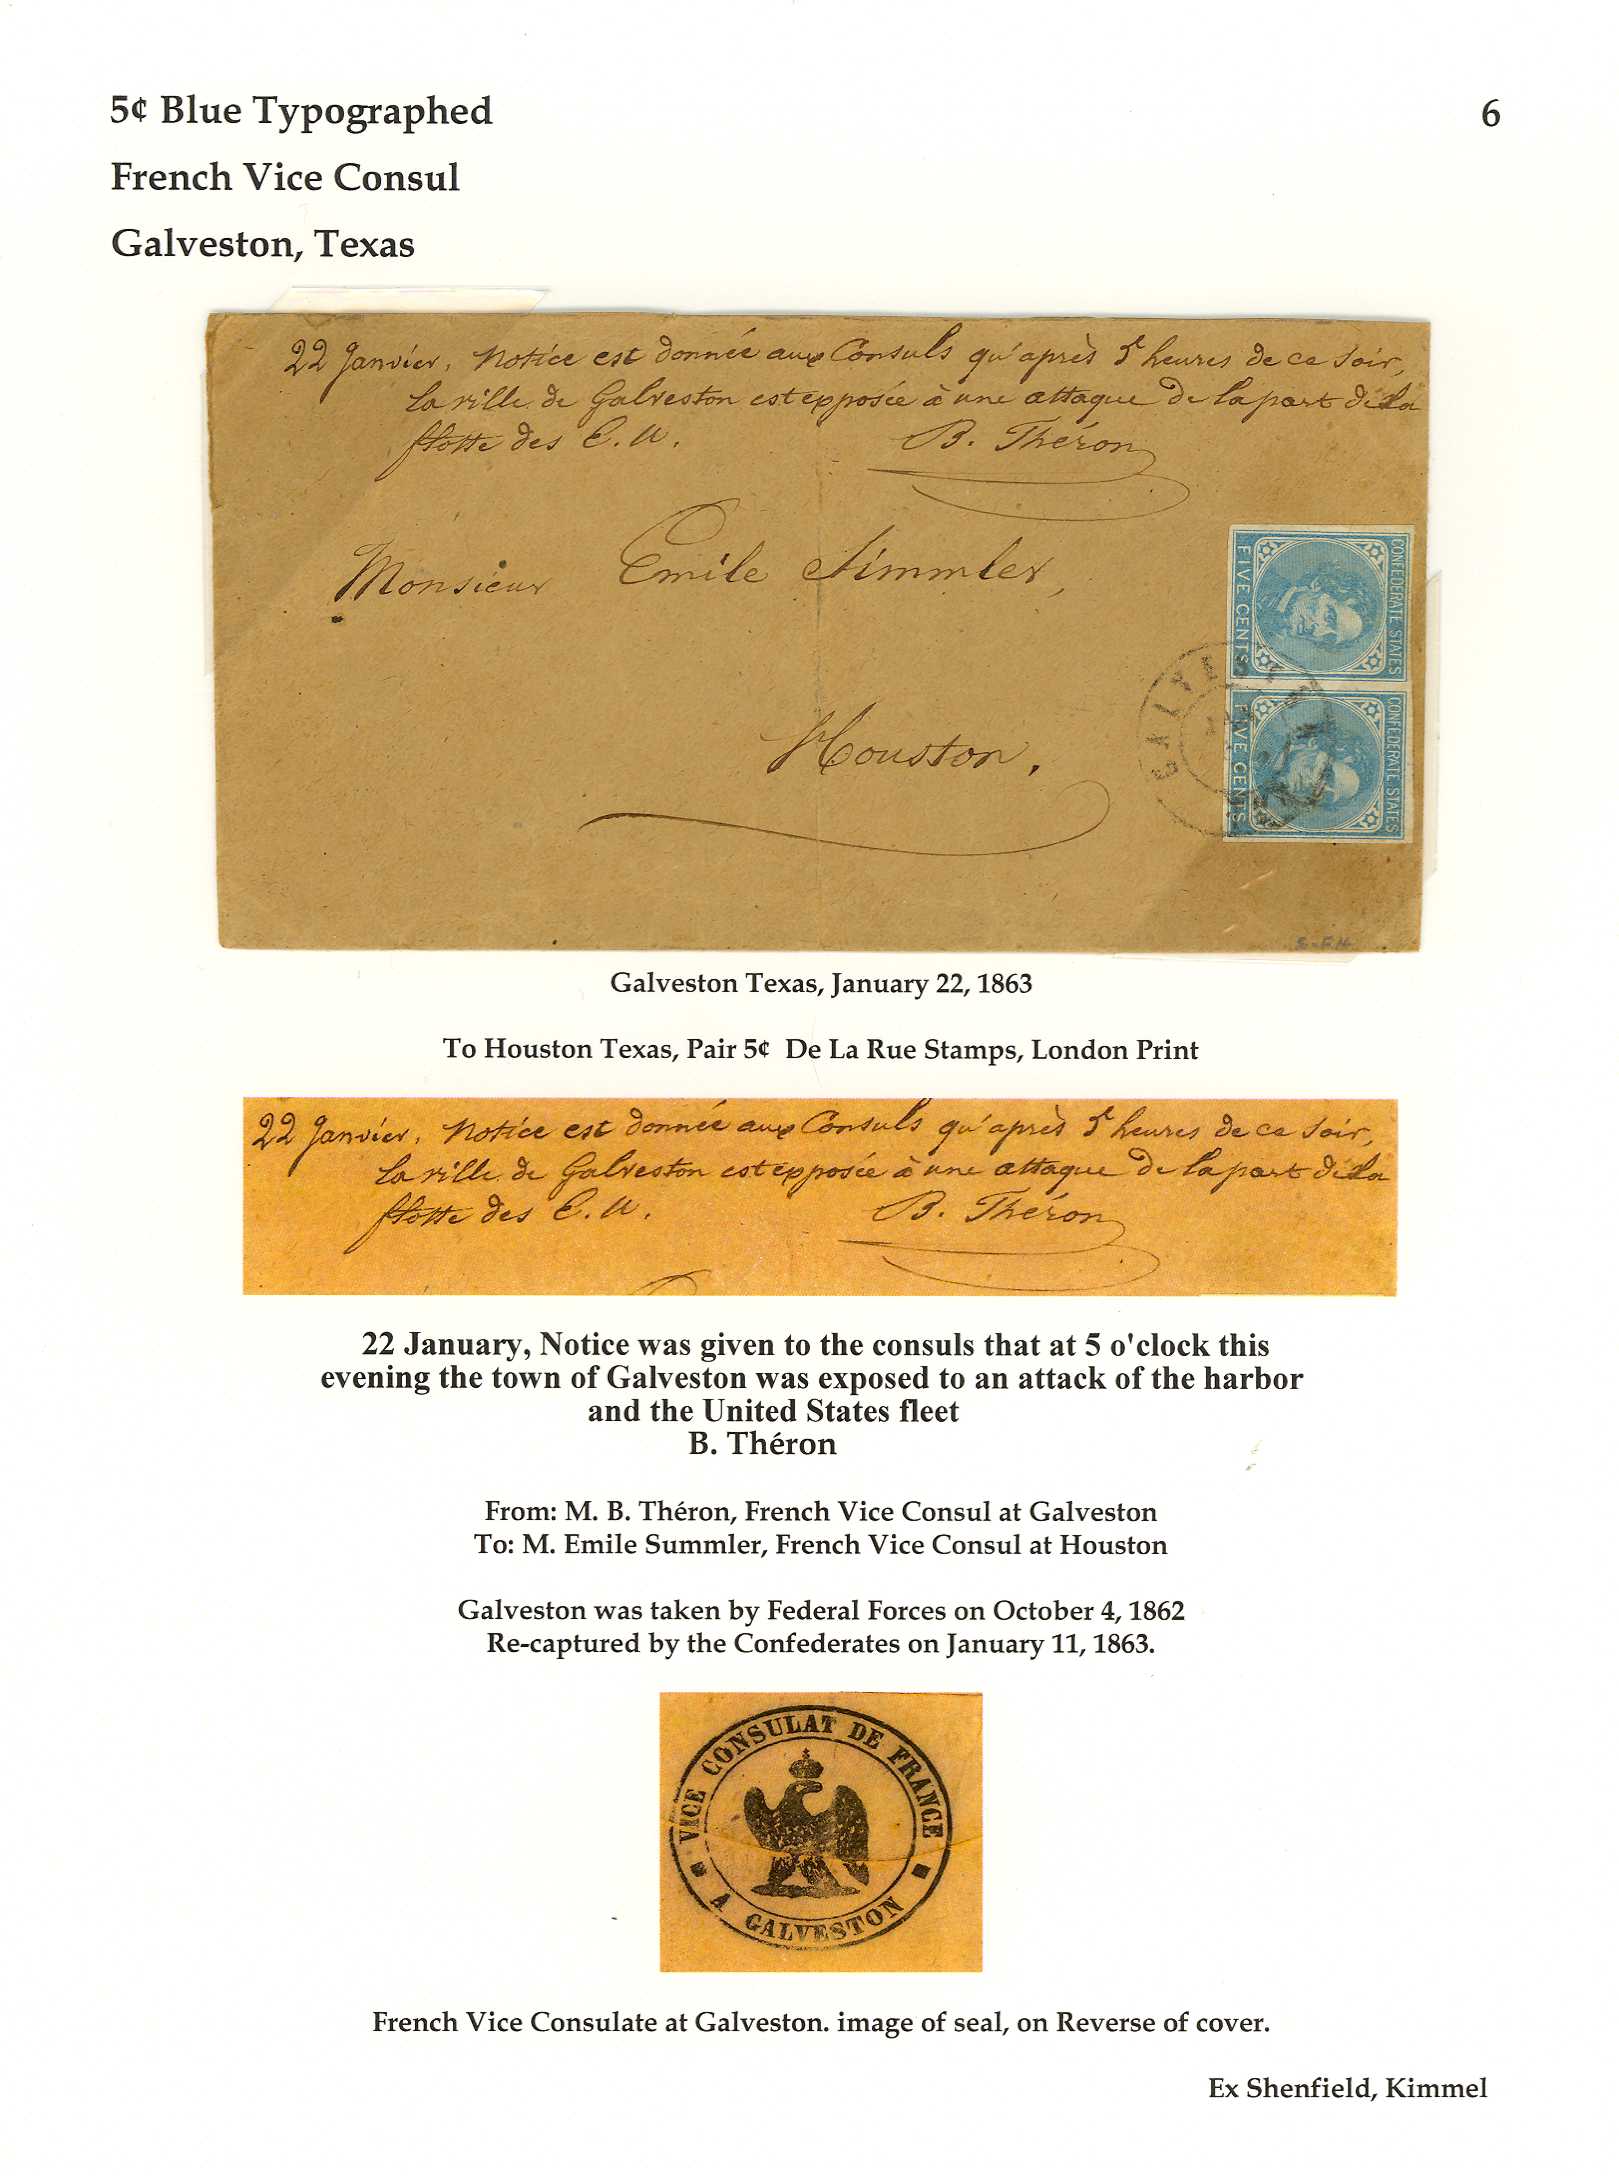 5¢ Blue Typographed
6
French Vice Consul
Galveston, Texas
22 Janvier, Notice est donnée aux Consuls qu'après 5 heures de ce soir,
la ville de Galveston est exposée à une attaque de la part de la
flotte des E. U.
B. Théron
Monsieur Emile Simmler,
Houston.
CONFEDERATE STATES
FIVE CENTS
CONFEDERATE STATES
FIVE CENTS
GALVES
Galveston Texas, January 22, 1863
To Houston Texas, Pair 5¢ De La Rue Stamps, London Print
22 Janvier, Notice est donnée aux Consuls qu'après 5 heures de ce soir,
la ville de Galveston est exposée à une attaque de la part de la
flotte des E. U.
B. Théron
22 January, Notice was given to the consuls that at 5 o'clock this
evening the town of Galveston was exposed to an attack of the harbor
and the United States fleet
B. Théron
From: M. B. Théron, French Vice Consul at Galveston
To: M. Emile Summler, French Vice Consul at Houston
Galveston was taken by Federal Forces on October 4, 1862
Re-captured by the Confederates on January 11, 1863.
VICE CONSULAT DE FRANCE
A GALVESTON
French Vice Consulate at Galveston. image of seal, on Reverse of cover.
Ex Shenfield, Kimmel